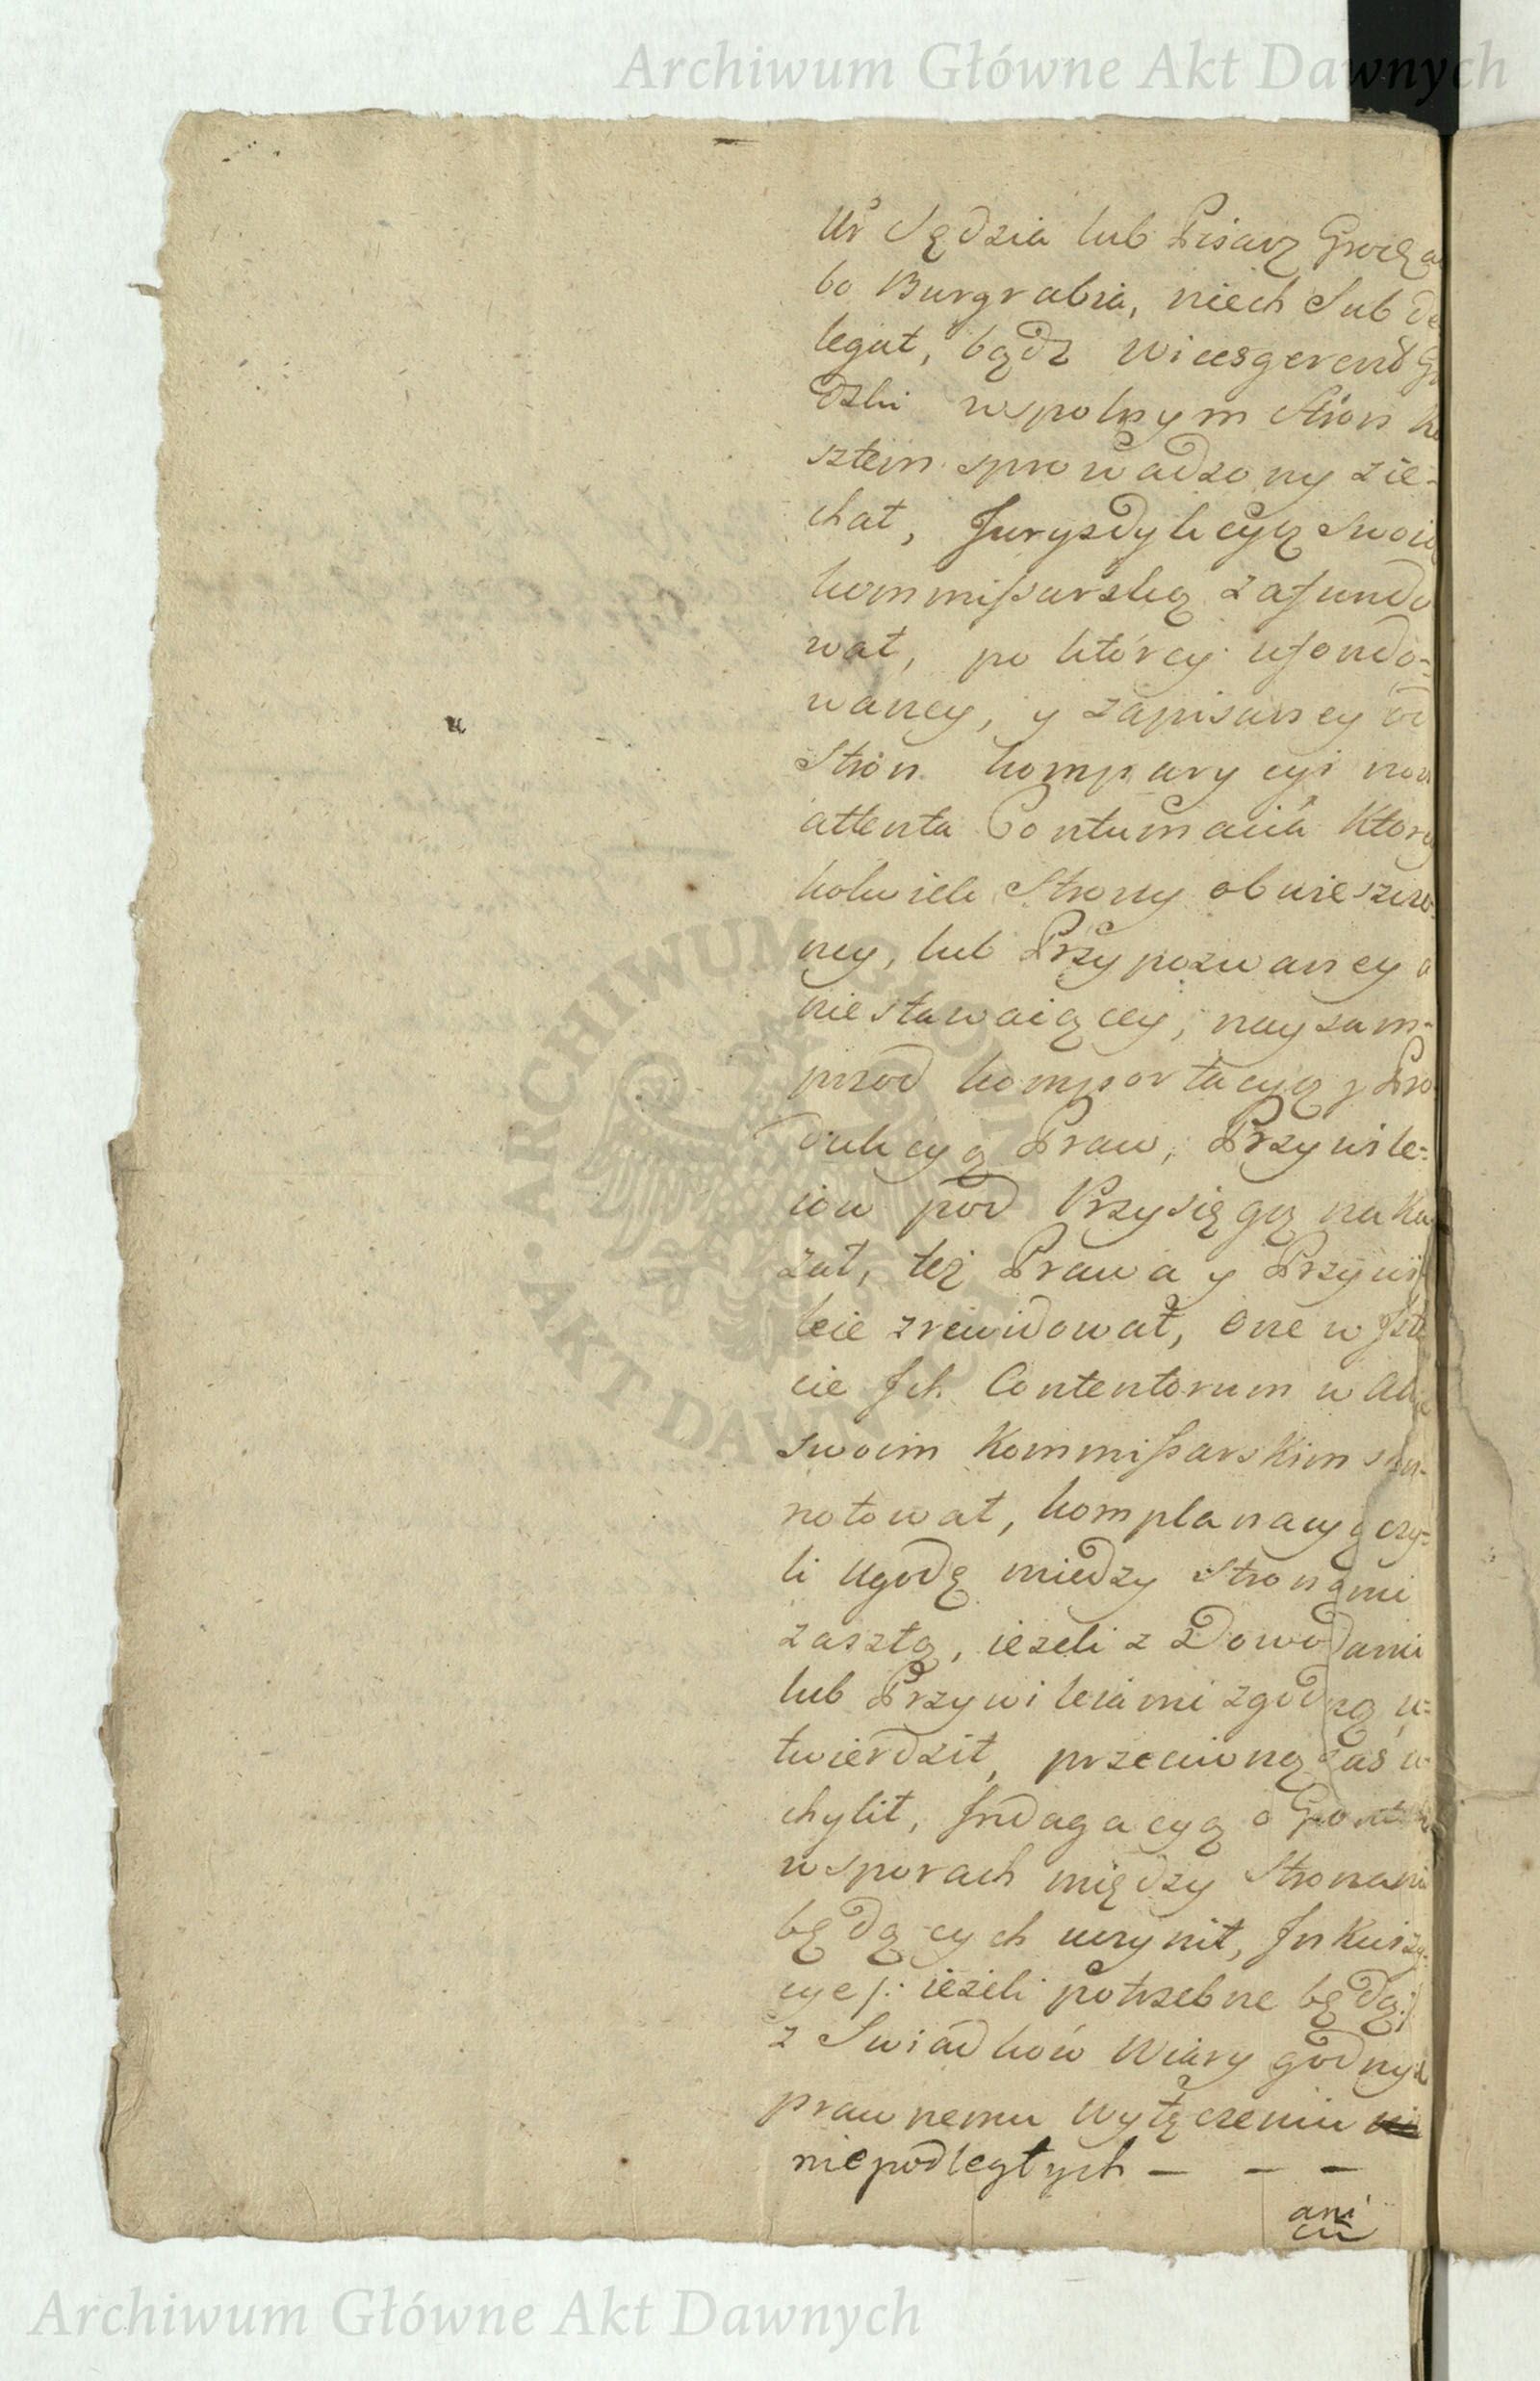 Archiwum Główne Akt Dawnych
Ur Sędzia lub Pisarz Grodz a
bo Burgrabia, niech Sub de
legat, bądz Wicesgerend G
dzki wspolnym Stron ko
sztem sprowadzony zie-
chał, Juryzdykcyą Swoią
kommissarską zafundo
wał, po którey ufondo=
waney, y zapisaney od
Strón komparycyi non
attenta Contumacia Ktory
kolwiek Strony obwieszczo-
ney, lub Przypozwaney a
niestawaiącey, nayzam-
przod komportacyą y Pro
dukcyą Praw, Przywile=
iow pod Przysięgą naka
zał, też Prawa y Przywi
leie zrewidował, one w Jsto
cie Jch Contentorum w Akcie
swoim Kommissarskim
notował, komplanacyą czy=
li Ugodę miedzy Stronami
zaszłą, ieżeli z Dowodami
lub Przywileiami zgodną u=
twierdził, przeciwną zaś u-
chylił, Jndagacyą o
w sporach między Stronami
będących uczynił, Jnkwizy-
cye /: ieżeli potrzebne będą :/
z Swiadków Wiary godnych
prawnemu Wyłączeniu
niepodległych — — —
ani
ARCHIWUM GŁÓWNE • AKT DAWNYCH •
Archiwum Główne Akt Dawnych